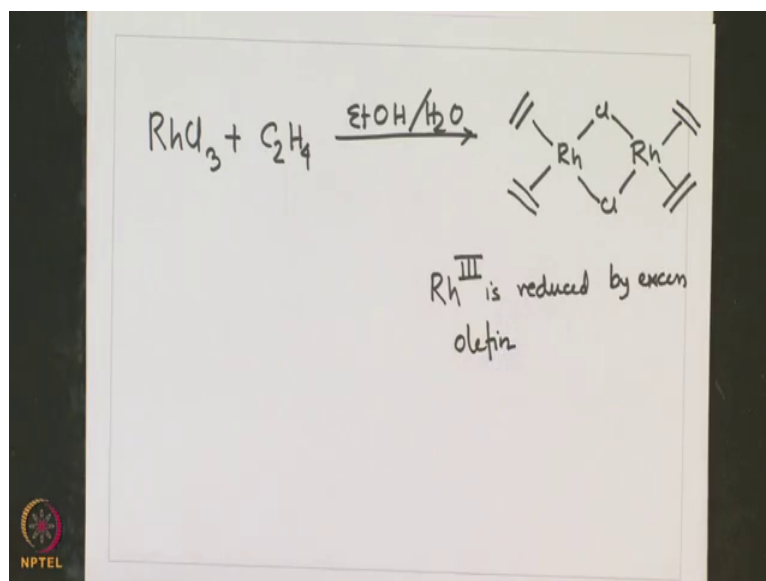 RhCl₃ + C₂H₄ EtOH/H₂O Cl
Rh Rh
Cl
Rh^III is reduced by excess
olefin
NPTEL